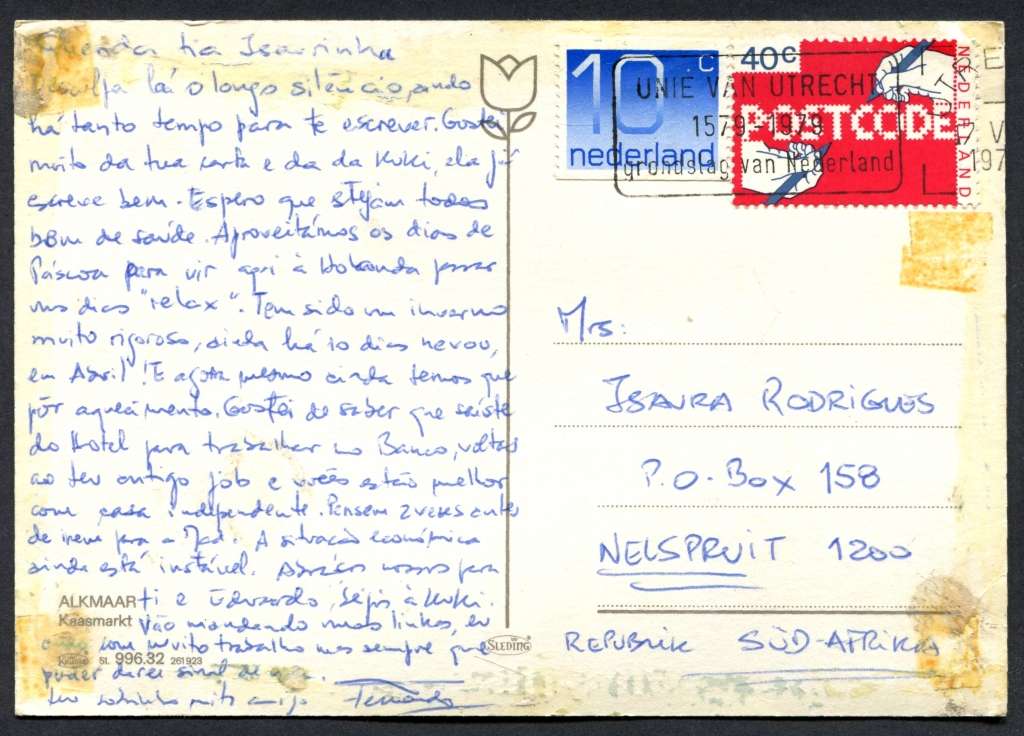 Querida tia Isaurinha
Desculpa lá o longo silêncio, ando
há tanto tempo para te escrever. Gostei
muito da tua carta e da da Kuki, ela já
escreve bem. Espero que stejam todos
bom de saúde. Aproveitámos os dias de
Páscoa para vir aqui à Holanda passar
uns dias "relax". Tem sido um inverno
muito rigoroso, ainda há 10 dias nevou,
em Abril! E agora mesmo ainda temos que
pôr aquecimento. Gostei de saber que saíste
do Hotel para trabalhar no Banco, voltas
ao teu antigo job e vocês estão melhor
com casa independente. Pensem 2 vezes antes
de irem pra a. A situação económica
ainda está instável. Abraços nossos para
ti e Eduardo, bejs à Kuki.
Vão mandando umas linhas, eu
com muito trabalho mas sempre que
puder darei sinal de
teu sobrinho mto amigo Fernando
ALKMAAR
Kaasmarkt
St. 996.32 261923
SLEDING
10 c
nederland
40c
POSTCODE
NEDERLAND
UNIE VAN UTRECHT
1579-1979
grondslag van Nederland
Mrs:
ISAURA RODRIGUES
P.O. Box 158
NELSPRUIT 1200
REPUBLIK SÜD-AFRIKA